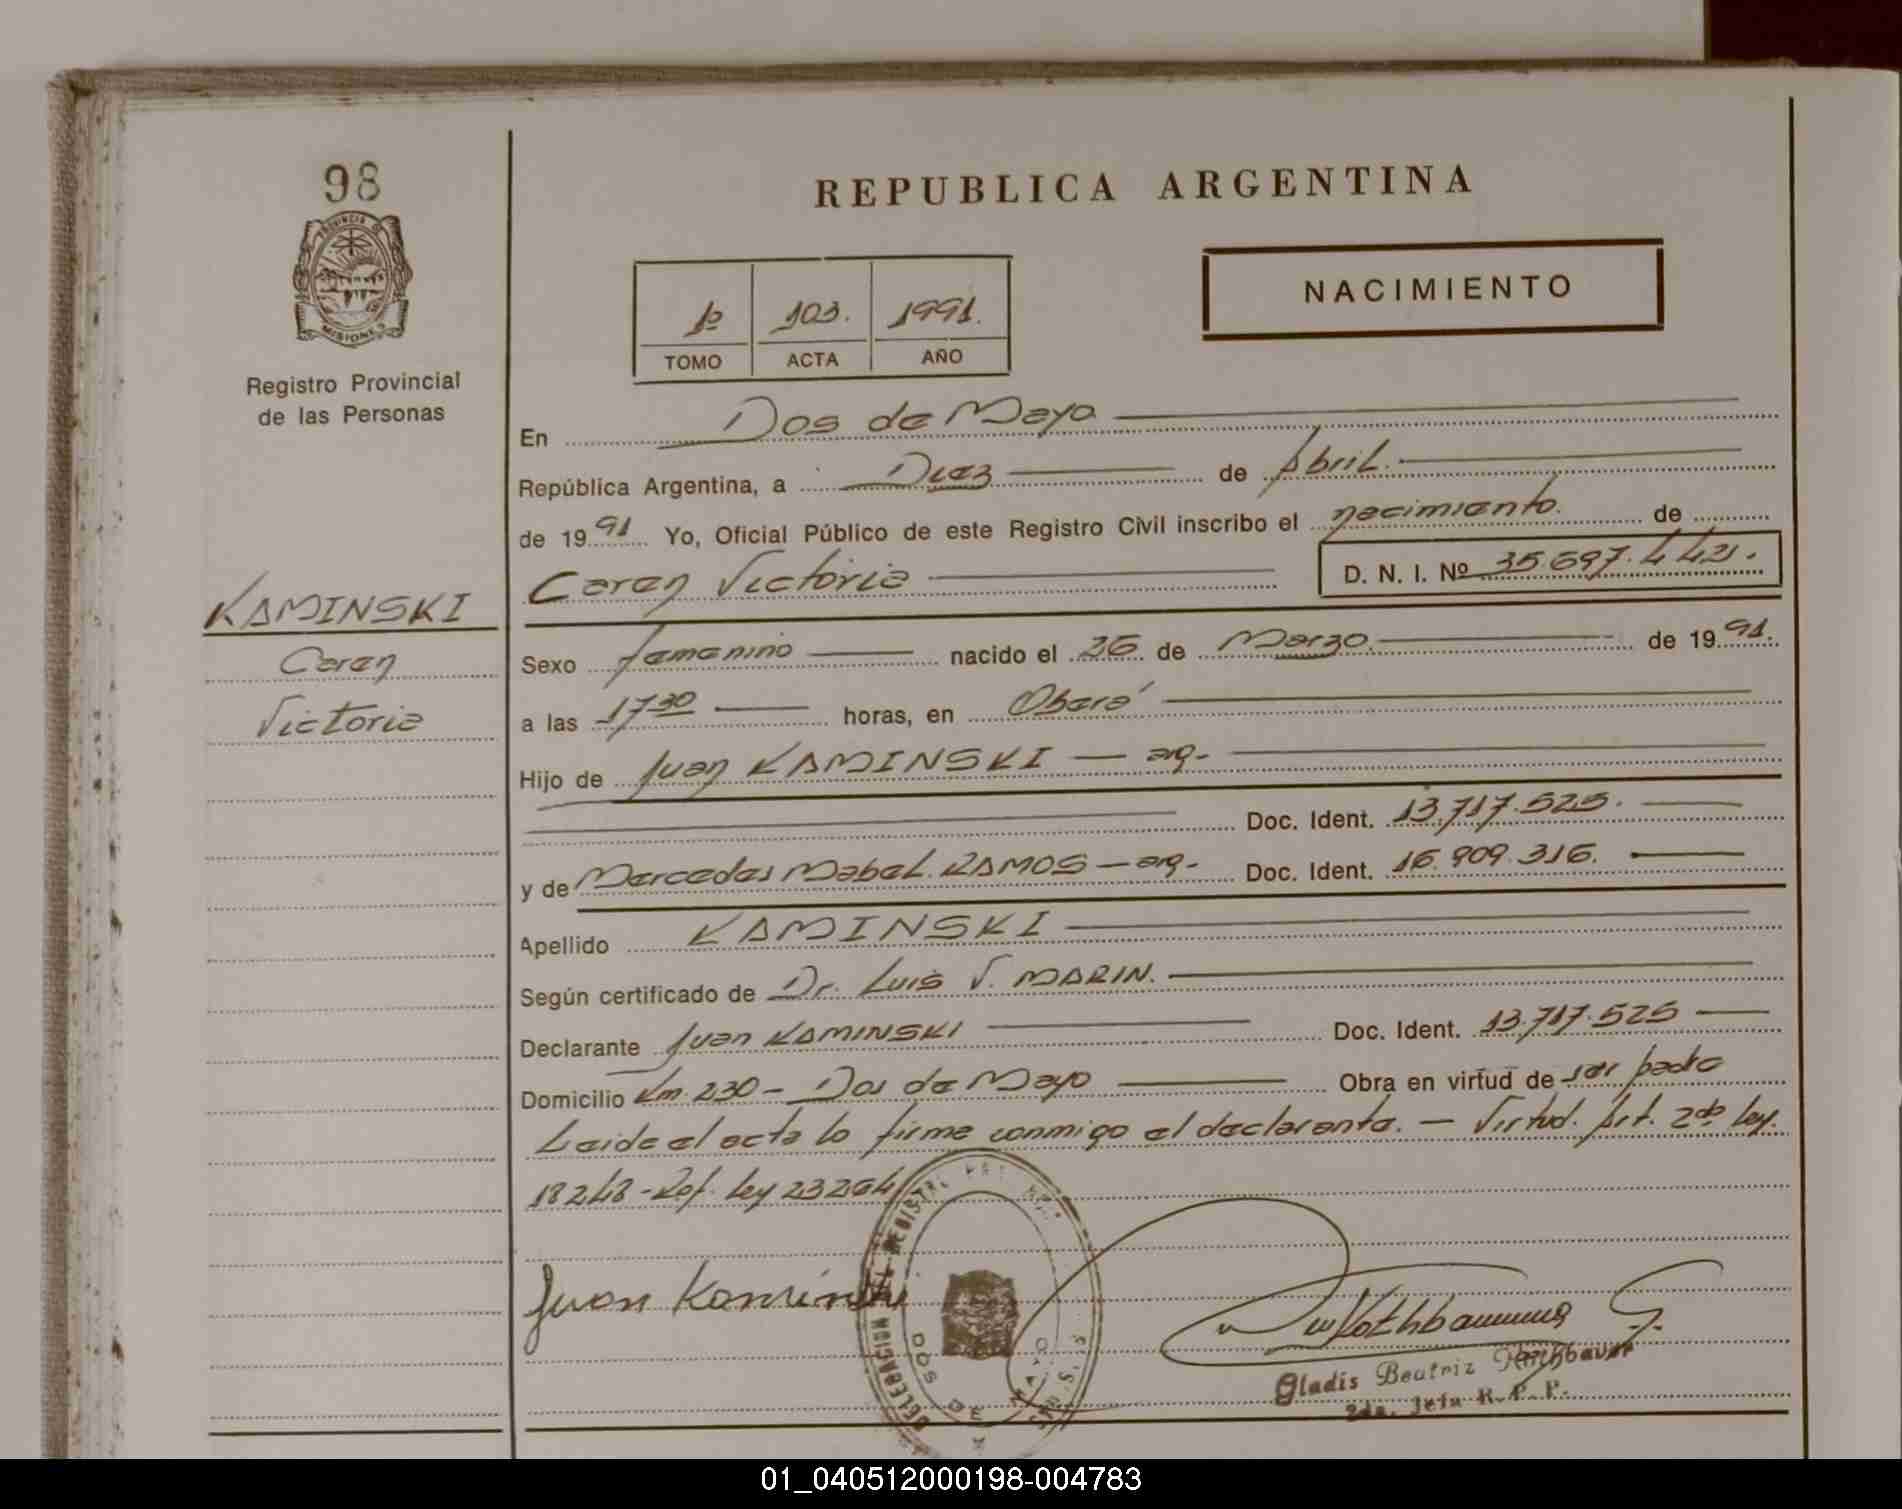 98
PROVINCIA D
MISIONES
Registro Provincial
de las Personas
KAMINSKI
Caren
Victoria
REPUBLICA ARGENTINA
NACIMIENTO
1º 103. 1991.
TOMO ACTA AÑO
En Dos de Mayo
República Argentina, a Diez de Abril.
de 1991 Yo, Oficial Público de este Registro Civil inscribo el nacimiento. de
Caren Victoria D. N. I. Nº 35.697.442.
Sexo femenino nacido el 26 de Marzo. de 1991.
a las 17 30 horas, en Oberá
Hijo de Juan KAMINSKI — arg.
Doc. Ident. 13.717.525.
y de Mercedes Mabel RAMOS — arg- Doc. Ident. 16.909.316.
Apellido KAMINSKI
Según certificado de Dr. Luis V. MARIN.
Declarante Juan KAMINSKI Doc. Ident. 13.717.525
Domicilio Km. 230 - Dos de Mayo Obra en virtud de ser padre
Leida el acta lo firma conmigo el declarante. — Virtud. Art. 2do ley.
18248 - Ref. ley 23264
Juan Kaminski
DELEGACION DEL REGISTRO
DOS DE MAYO
Rothbauer G.
Gladis Beatriz Rothbauer
2da. Jefa R. P. P.
01_040512000198-004783